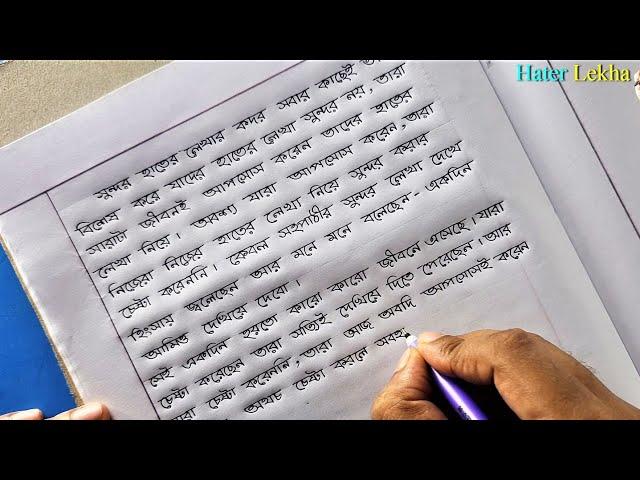 Hater Lekha
সুন্দর হাতের লেখার কদর সবার কাছেই
বিশেষ করে যাদের হাতের লেখা সুন্দর নয়, তারা
সারাটা জীবনই আপসোস করেন তাদের হাতের
লেখা নিয়ে। অবশ্য যারা আপসোস করেন, তারা
নিজেরা নিজের হাতের লেখা নিয়ে সুন্দর করার
চেষ্টা করেননি। কেবল সহপাঠীর সুন্দর লেখা দেখে
হিংসায় জ্বলেছেন আর মনে মনে বলেছেন - একদিন
আমিও দেখিয়ে দেবো।
সেই একদিন হয়তো কারো কারো জীবনে এসেছে। যারা
চেষ্টা করেছেন তারা সত্যিই দেখিয়ে দিতে পেরেছেন। আর
যারা চেষ্টা করেননি, তারা আজ অবদি আপসোসই করেন
অথচ চেষ্টা করলে সবই